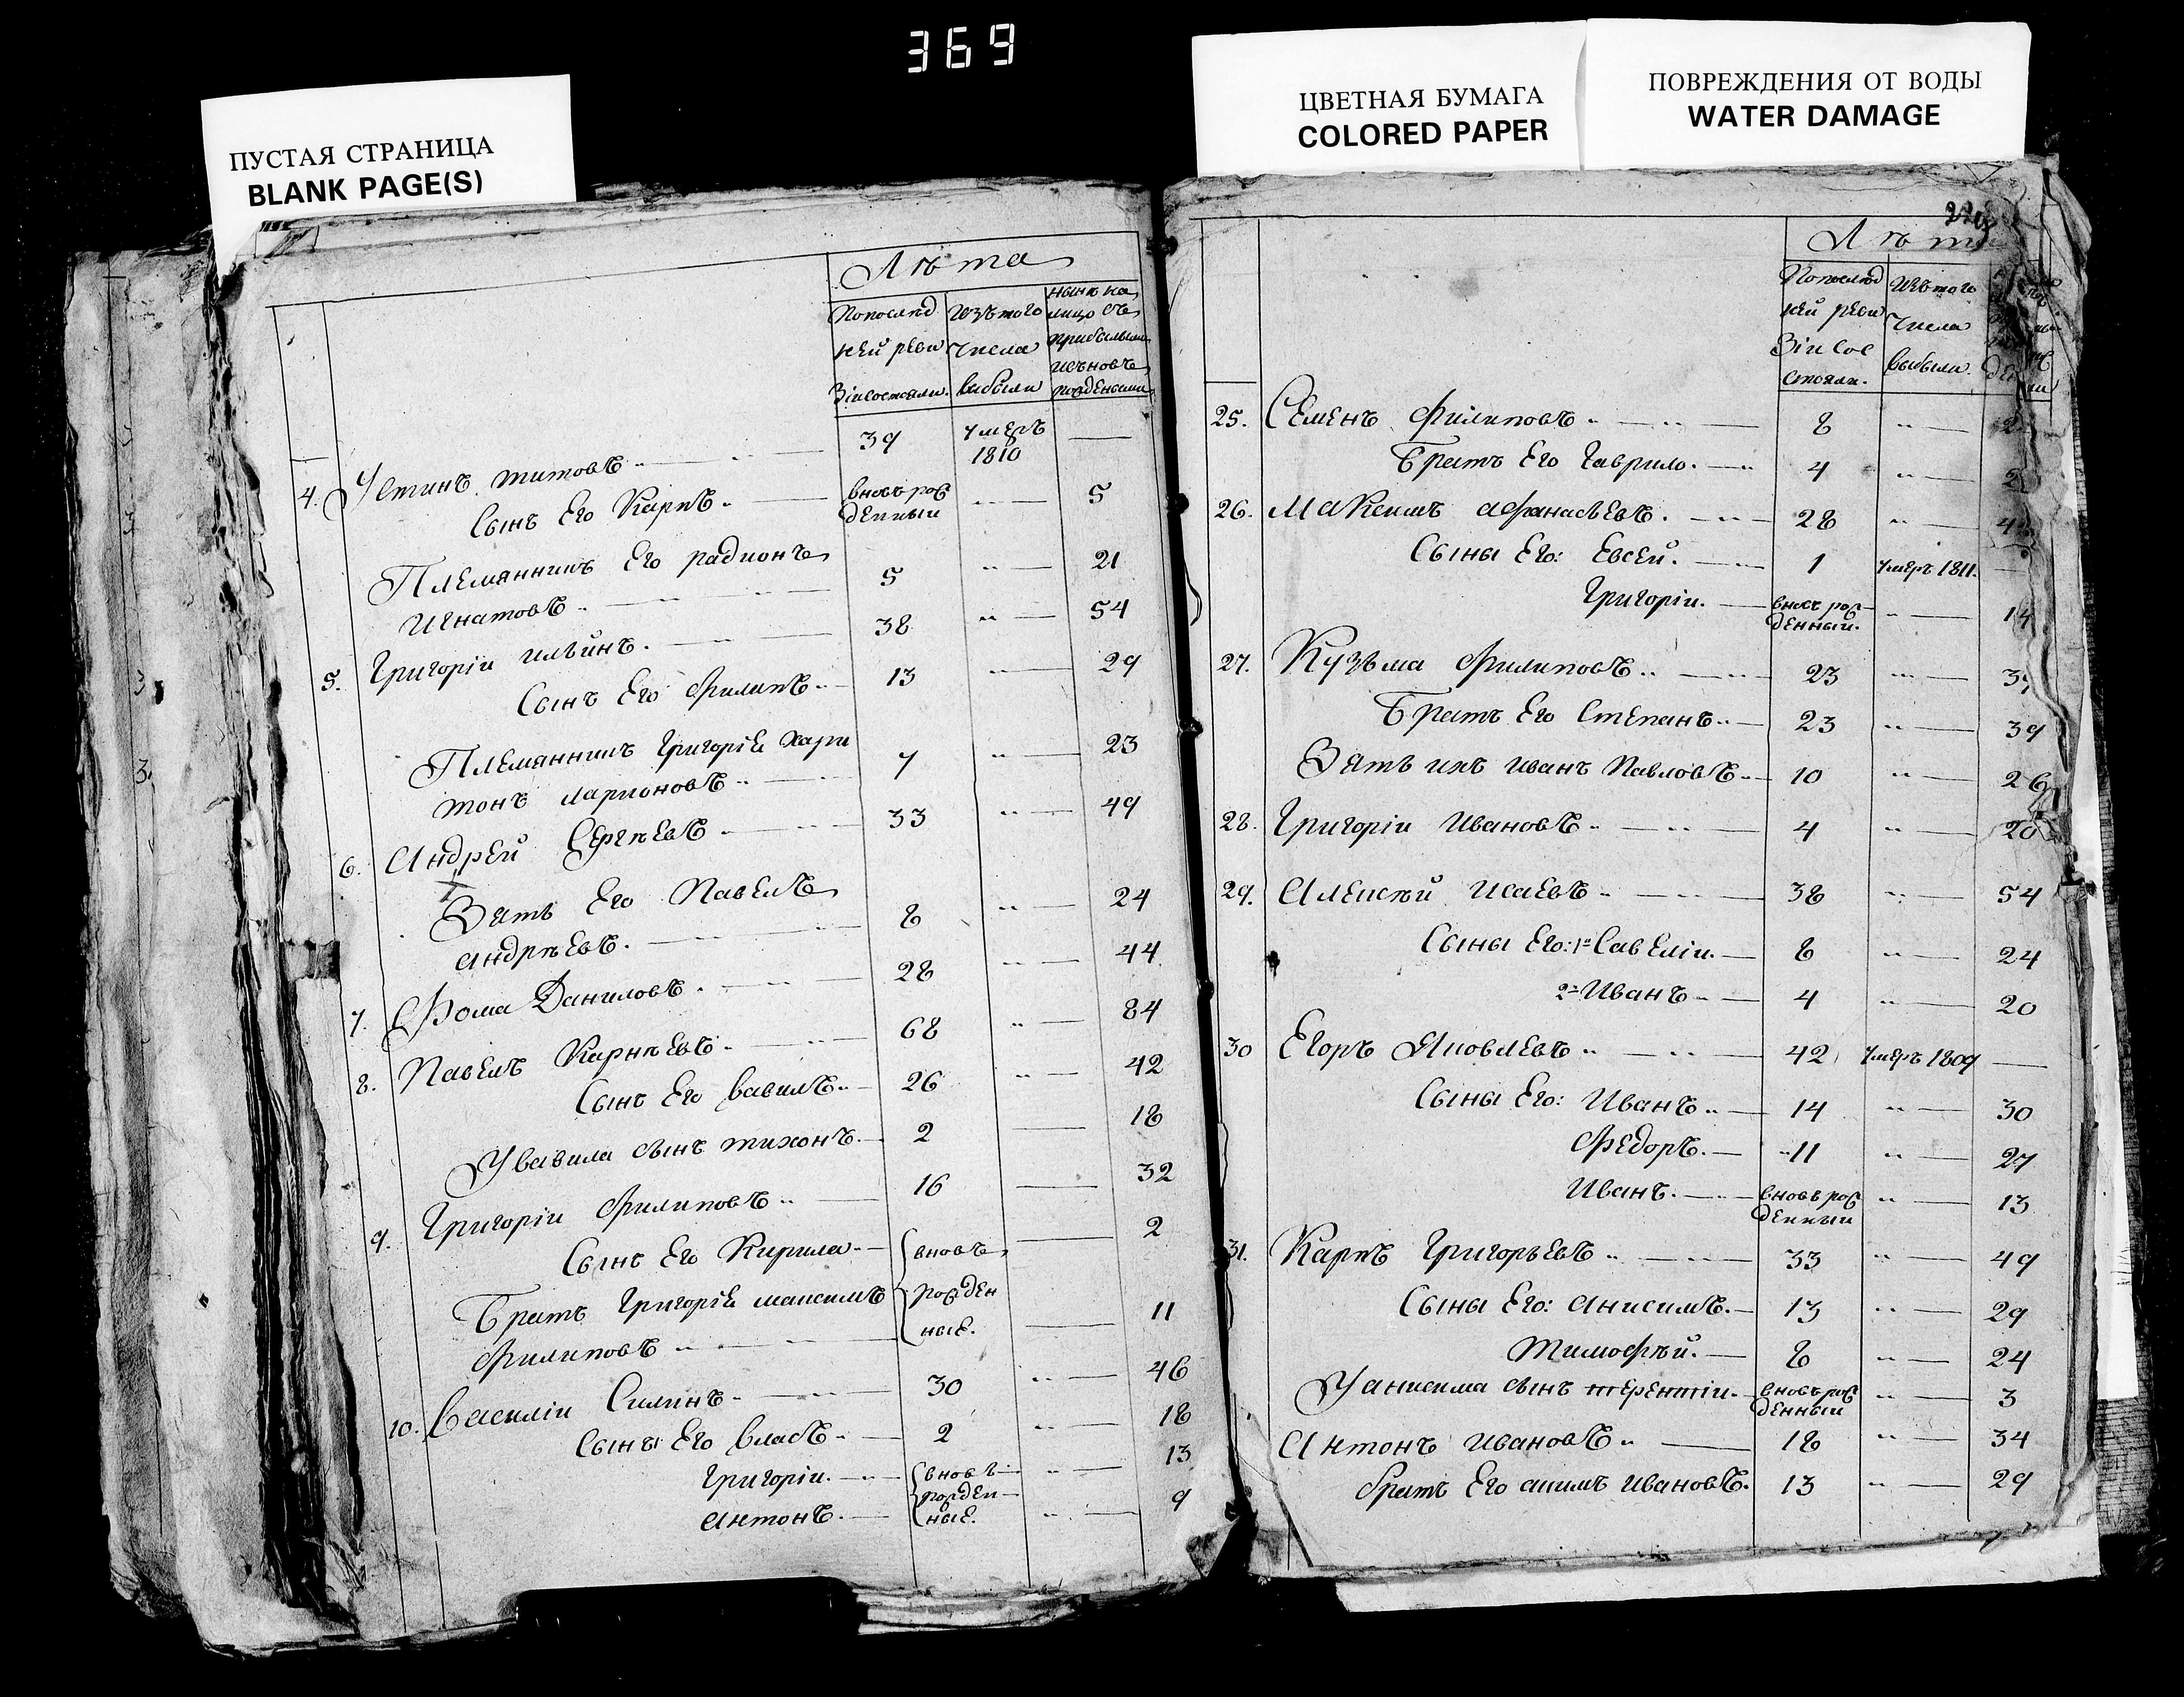 369
ПУСТАЯ СТРАНИЦА
BLANK PAGE(S)
ЦВЕТНАЯ БУМАГА
COLORED PAPER
ПОВРЕЖДЕНИЯ ОТ ВОДЫ
WATER DAMAGE
Лѣта
Попослѣд ней реви зіи состояли. Изъ того числа выбыли нынѣ на лицо съ прибылыми
4. Устинъ титовъ 39 умеръ 1810 —
Сынъ Его Карпъ. вновь рож денный 5
Племянникъ Его радионъ
игнатовъ 5 21
5. Григоріи ильинъ. 38 54
Сынъ Его филипъ 13 29
Племянникъ Григорія хари
тонъ ларионовъ 7 23
6. Андрей Сергѣевъ 33 49
Зять Его Павелъ
андрѣевъ. 8 24
7. Фома Даниловъ. 28 44
8. Павелъ Карпѣевъ 68 84
Сынъ Его вавилъ 26 42
У вавила сынъ тихонъ. 2 18
9. Григоріи филиповъ 16 32
Сынъ Его Кирила вновь 2
Братъ Григорія максимъ рожден
филиповъ ные. 11
10. Василіи Силинъ 30 46
Сынъ Его власъ 2 18
Григоріи. вновь 13
рожден
антонъ. ные. 9
Лѣта
Попослѣд ней реви зіи сос тояли. Изъ того числа выбыли.
25. Семенъ филиповъ 8
Братъ Его Гаврило. 4
26. Максимъ афанасьевъ. 28
Сыны Его: Евсей. 1 умеръ 1811. —
Григоріи. вновь рож денный. 14
27. Кузьма филиповъ 23 39
Братъ Его Степанъ 23 39
Зять ихъ иванъ Павловъ 10 26
28. Григоріи Ивановъ 4 20
29. Алексѣй исаевъ 38 54
Сыны Его: 1й Савеліи. 8 24
2й Иванъ 4 20
30 Егоръ Яковлевъ 42 умеръ 1809 —
Сыны Его: Иванъ 14 30
Федоръ. 11 27
Иванъ. вновь рож денныи 13
31. Карпъ Григорьевъ 33 49
Сыны Его: анисимъ. 13 29
Тимофѣй. 8 24
У анисима сынъ терентіи. вновь рож денныи 3
Антонъ ивановъ 18 34
братъ Его акимъ ивановъ. 13 29